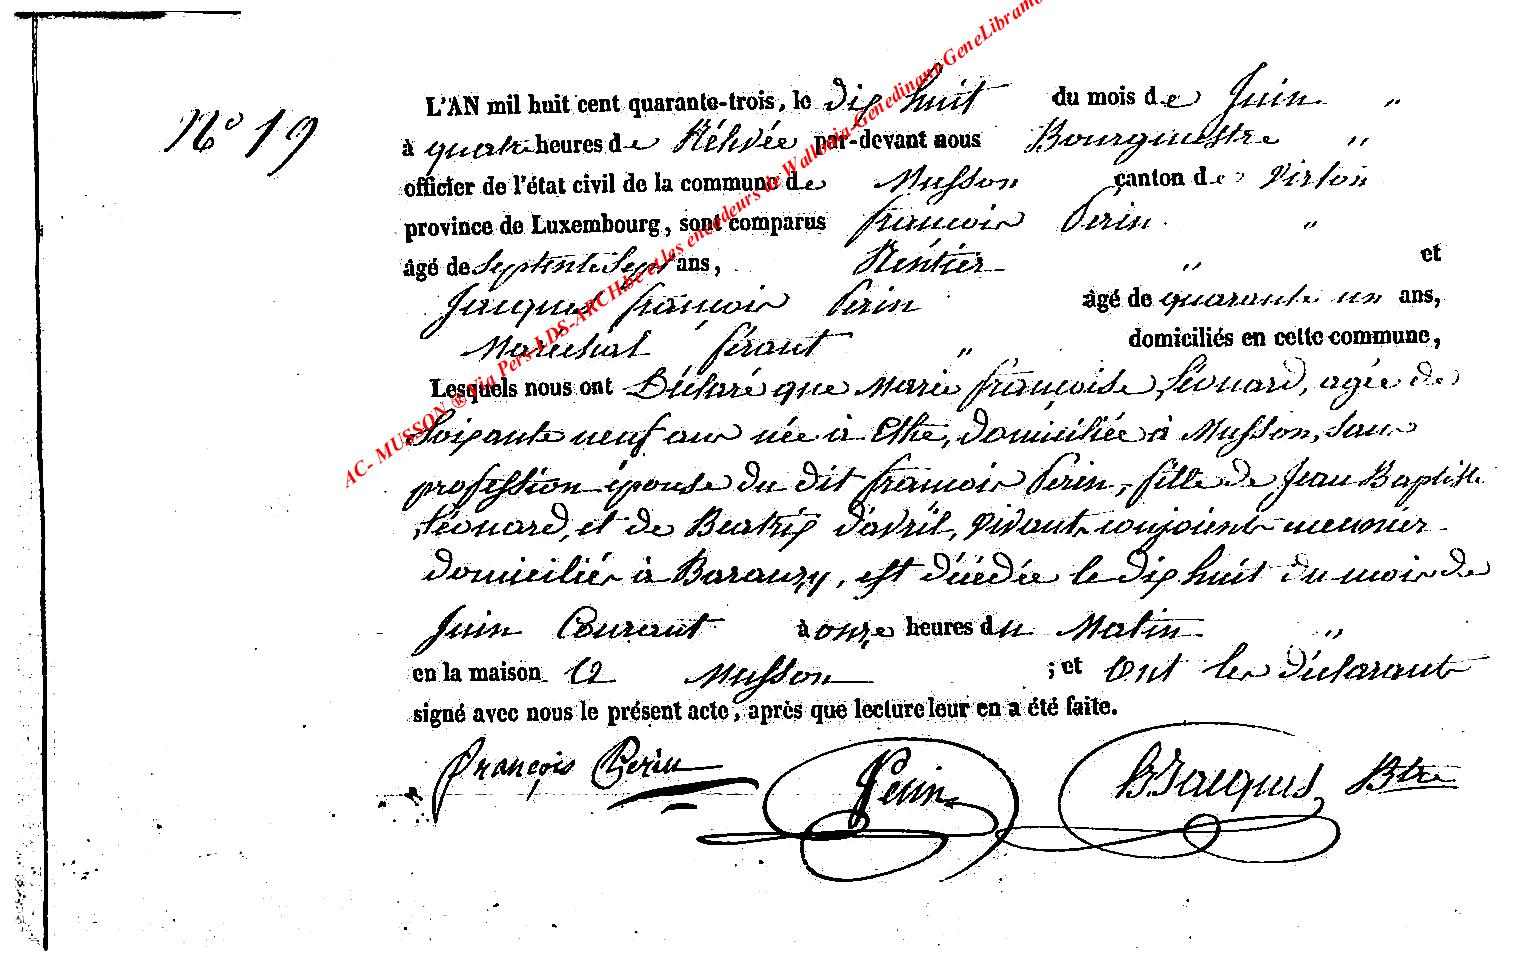 N° 19
L'AN mil huit cent quarante-trois, le dix huit du mois de Juin "
à quatre heures de Rélévée par-devant nous Bourgmestre "
officier de l'état civil de la commune de Musson canton de Virton
province de Luxembourg, sont comparus françois Perin "
âgé de Septente Sept ans, Réntier " et
Jacques françois Perin âgé de quarante un ans,
Maréchal férant " domiciliés en cette commune,
Lesquels nous ont Déclaré que Marie françoise Léonard, agée de
Soixante neuf ans née à Ethe, domiciliée à Musson, sans
profession épouse du dit françois Perin, fille de Jean Baptiste
Léonard, et de Beatrix Davril, vivant conjoints meunier
domiciliés à Baranzy, est décédée le dix huit du mois de
Juin Courant à onze heures du Matin "
en la maison à Musson ; et Ont les déclarants
signé avec nous le présent acte, après que lecture leur en a été faite.
François Perin Perin BJacques Btre
AC- MUSSON ® Via Pers-LDS-ARCH.be et les encodeurs de Wallonia-Genedinant-GeneLibramo